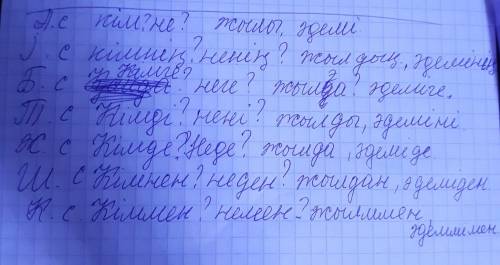 А.с кім? не? жылы, әдемі
І. с кімнің? ненің? жылдың, әдемінің
Б. с Кімге? неге? жылға? әдеміге.
Т. с Кімді? нені? жылды, әдеміні
Ж. с Кімде? Неде? жылда, әдеміде
Ш. с Кімнен? неден? жылдан, әдеміден
К. с. Кіммен? немен? жылмен, әдемимен